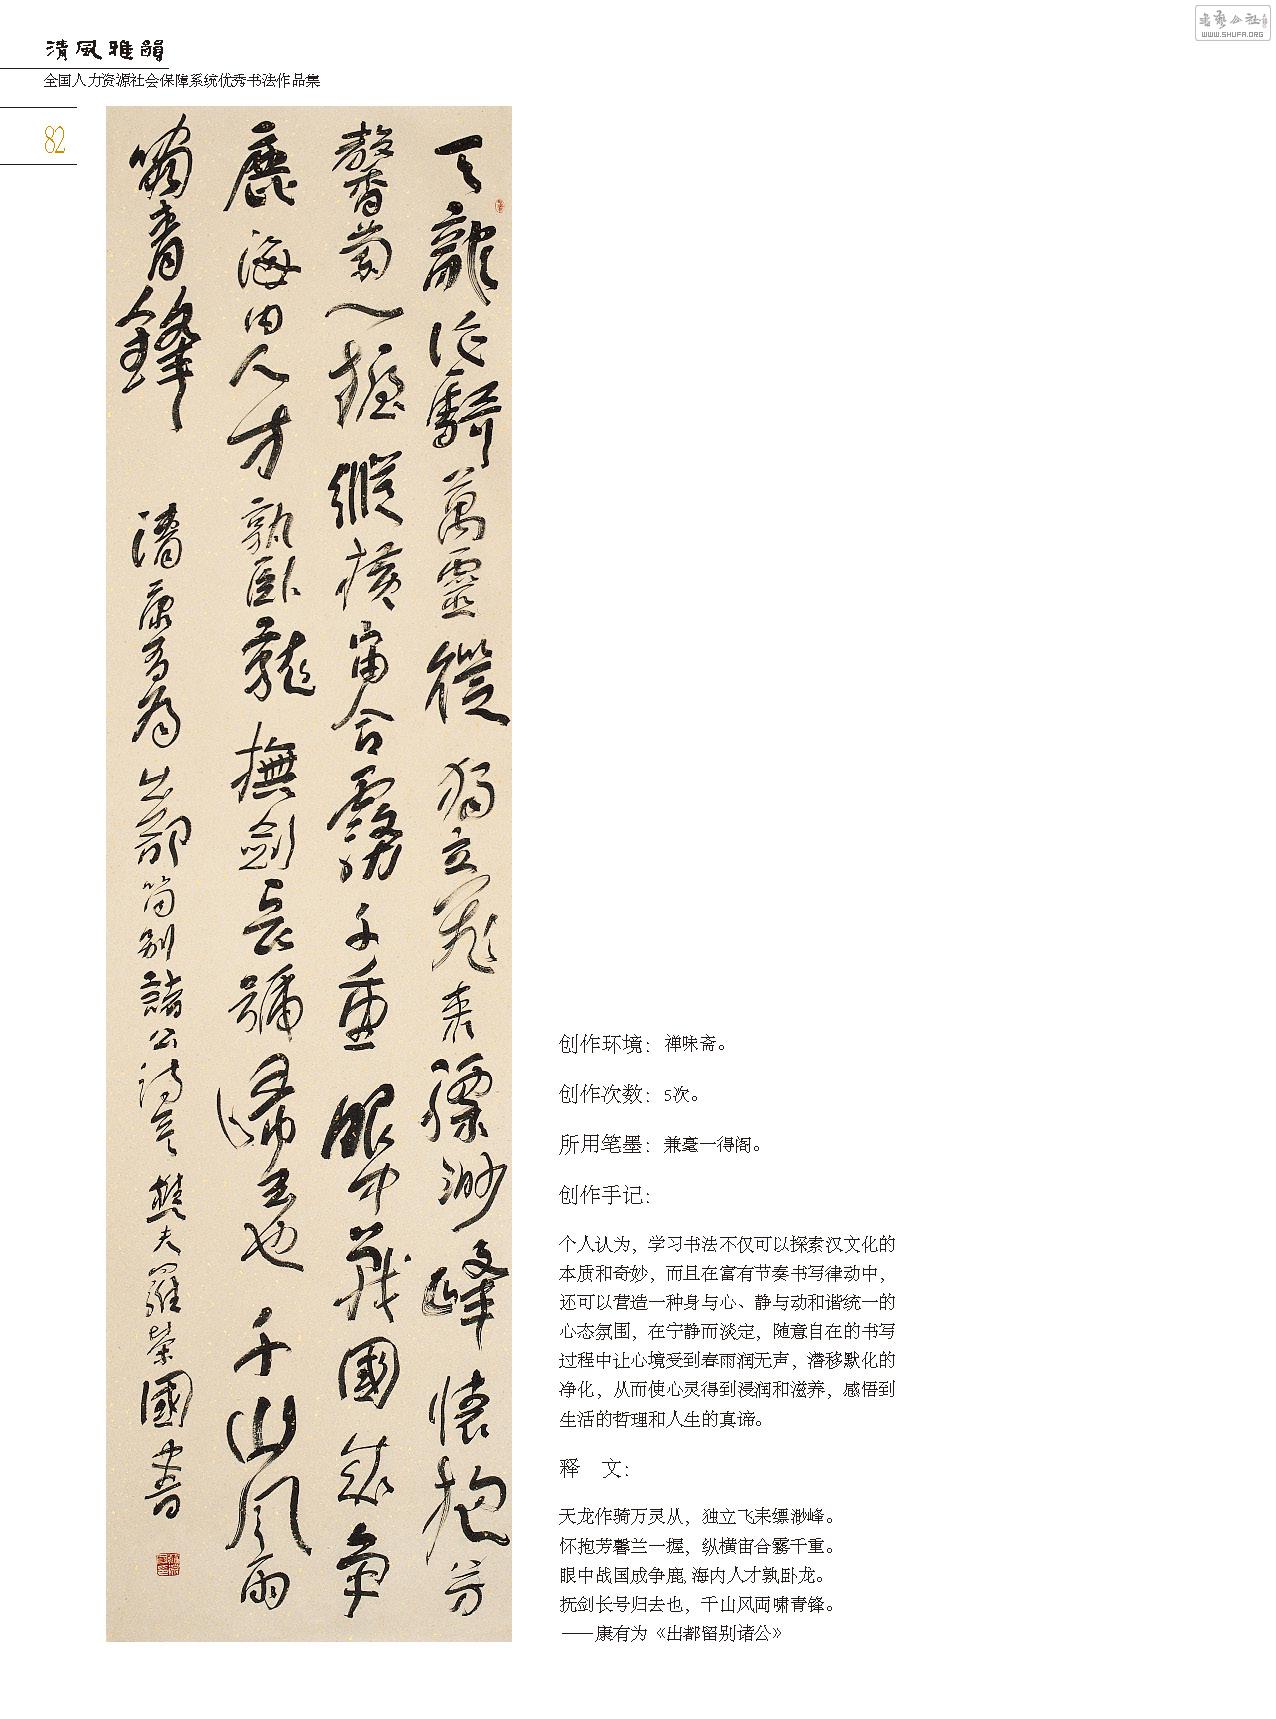 清風雅韻
全国人力资源社会保障系统优秀书法作品集
82
书艺公社
WWW.SHUFA.ORG
天龍作騎萬靈從獨立飛來縹渺峰懷抱芳
馨蘭一握縱橫宙合霧千重眼中戰國成争
鹿海内人才孰臥龍撫劍長號歸去也千山風雨
嘯青鋒
清康有為出都留别諸公詩意樊夫羅榮國書
创作环境：禅味斋。
创作次数：5次。
所用笔墨：兼毫一得阁。
创作手记：
个人认为，学习书法不仅可以探索汉文化的
本质和奇妙，而且在富有节奏书写律动中，
还可以营造一种身与心、静与动和谐统一的
心态氛围，在宁静而淡定，随意自在的书写
过程中让心境受到春雨润无声，潜移默化的
净化，从而使心灵得到浸润和滋养，感悟到
生活的哲理和人生的真谛。
释　文：
天龙作骑万灵从，独立飞来缥渺峰。
怀抱芳馨兰一握，纵横宙合雾千重。
眼中战国成争鹿,海内人才孰卧龙。
抚剑长号归去也，千山风雨啸青锋。
——康有为《出都留别诸公》